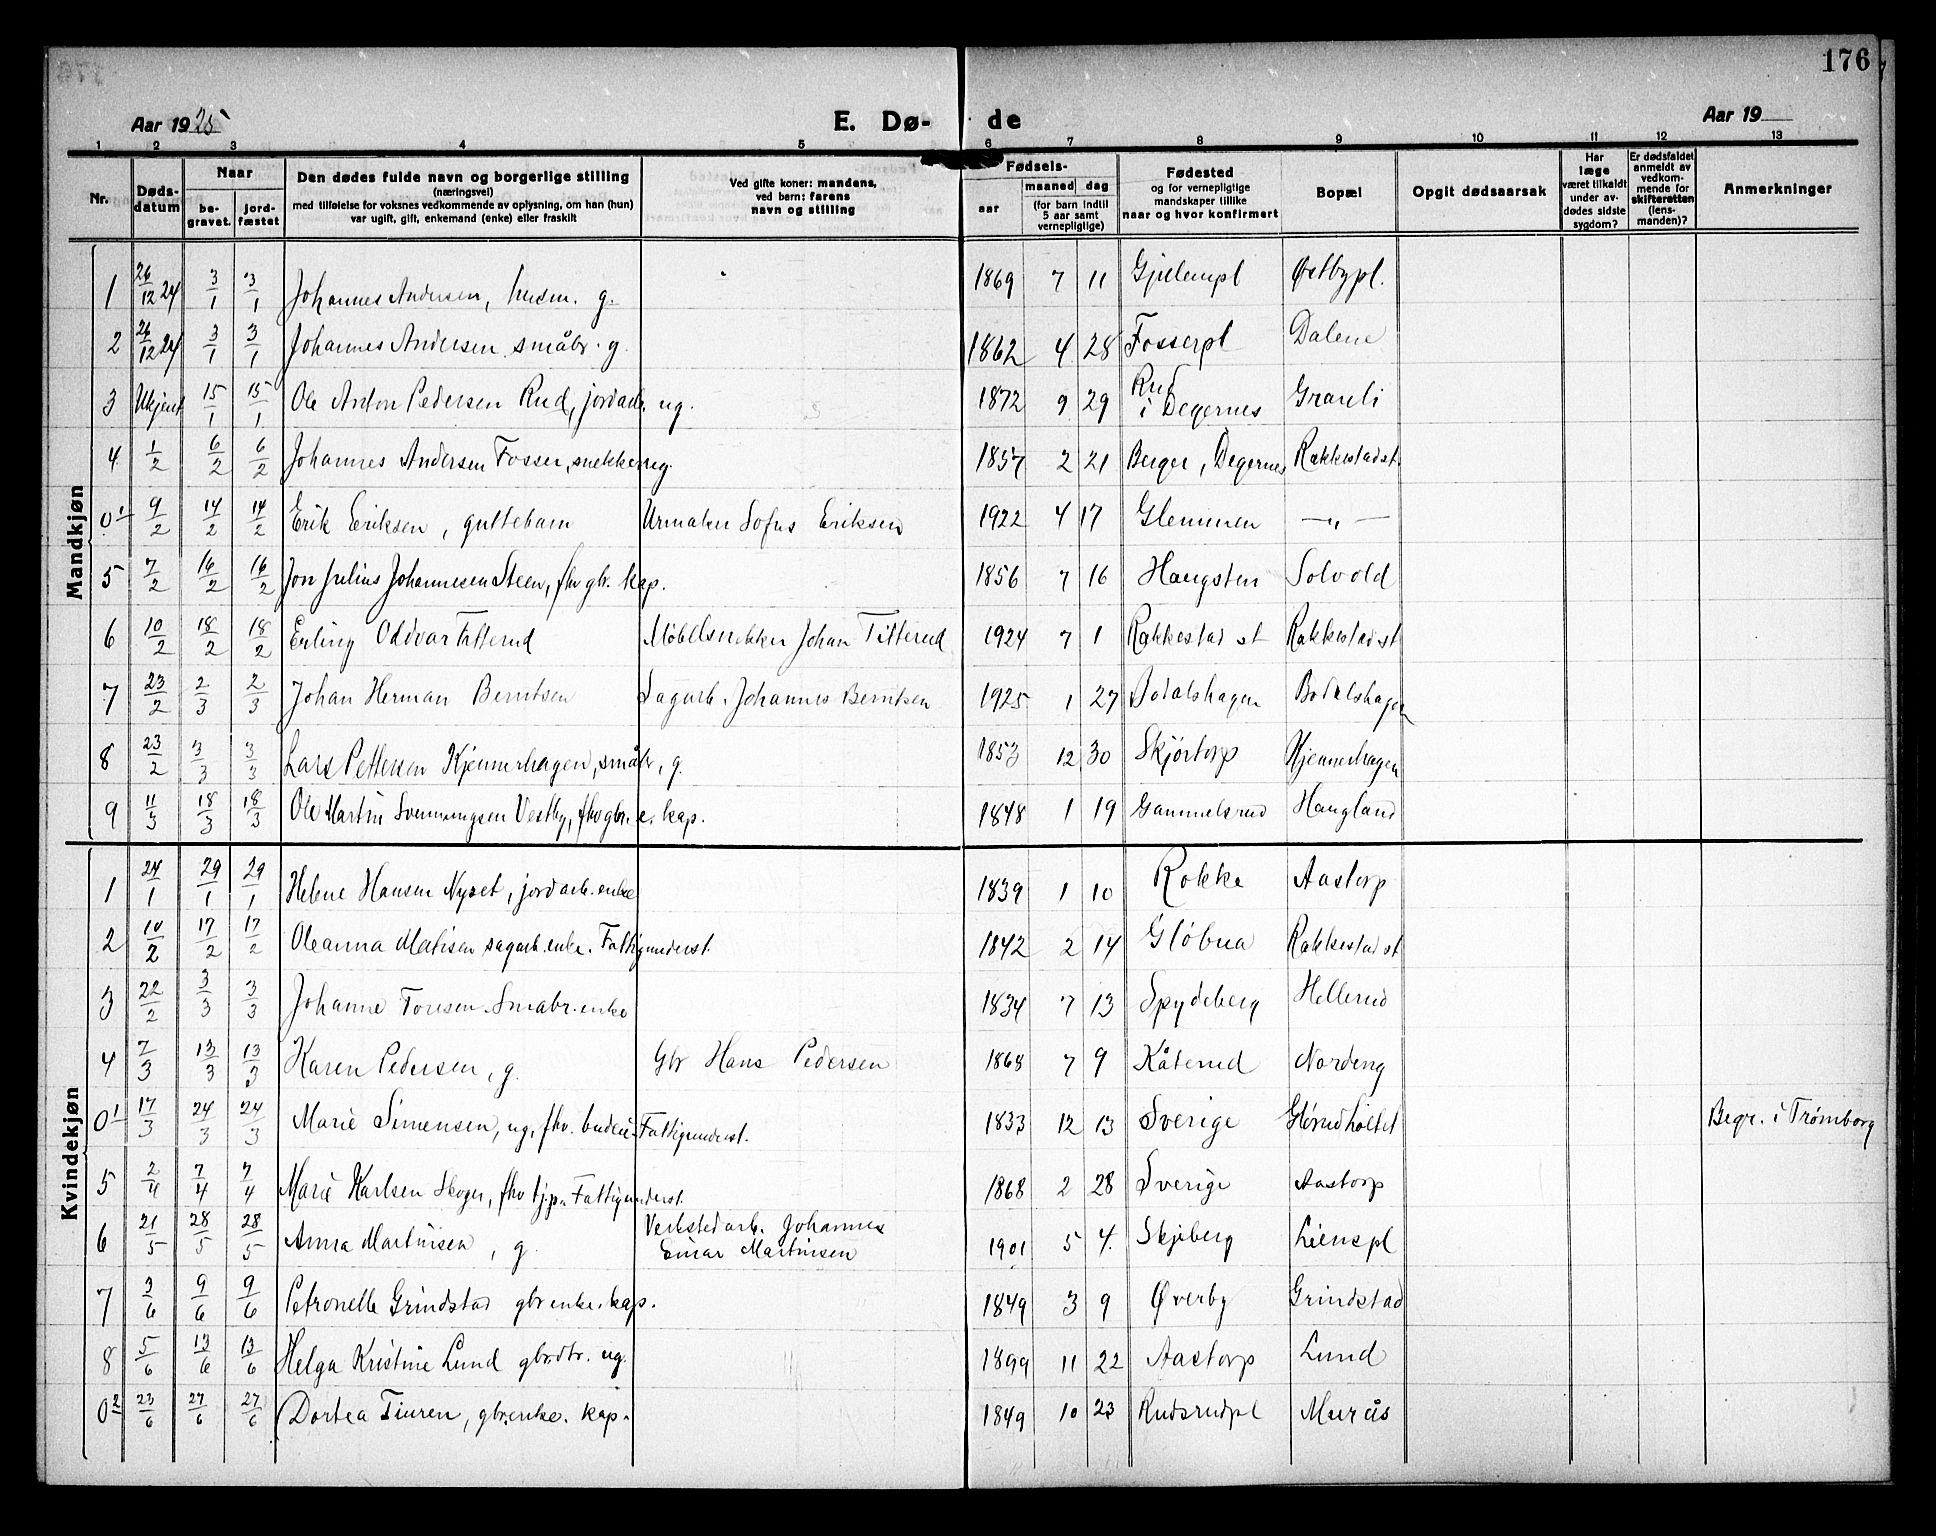 176
Aar 1925
E. Dø-
de
Aar 19
1 2 3 4 5 6 7 8 9 10 11 12 13
Nr.
Døds-
datum
Naar
be-
gravet.
jord-
fæstet
Den dødes fulde navn og borgerlige stilling
(næringsvei)
med tilføielse for voksnes vedkommende av oplysning, om han (hun)
var ugift, gift, enkemand (enke) eller fraskilt
Ved gifte koner: mandens,
ved barn: farens
navn og stilling
Fødsels-
aar
maaned dag
(for barn indtil
5 aar samt
vernepligtige)
Fødested
og for vernepligtige
mandskaper tillike
naar og hvor konfirmert
Bopæl
Opgit dødsaarsak
Har
læge
været tilkaldt
under av-
dødes sidste
sygdom?
Er dødsfaldet
anmeldt av
vedkom-
mende for
skifteretten
(lens-
manden)?
Anmerkninger
Mandkjøn
1 26/12 24 3/1 3/1 Johannes Andersen, husm. g. 1869 7 11 Gjulempl Østbypl.
2 26/12 24 3/1 3/1 Johannes Andersen småbr. g. 1862 4 28 Fosserpl Dalene
3 Ukjent 15/1 15/1 Ole Anton Pedersen Rud, jordarb. ug. 1872 9 29 Rud i Degernes Graneli
4 1/2 6/2 6/2 Johannes Andersen Fosser, snekker ug. 1857 2 21 Berger, Degernes Rakkestad st.
0¹ 9/2 14/2 14/2 Erik Eriksen, guttebarn Urmaker Sofus Eriksen 1922 4 17 Glemmen — „ —
5 7/2 16/2 16/2 Jon Julius Johannesen Steen, fhv gbr. kap. 1856 7 16 Haugsten Solvold
6 10/2 18/2 18/2 Erling Oddvar Titterud Møbelsnekker Johan Titterud 1924 7 1 Rakkestad st Rakkestad st
7 23/2 2/3 2/3 Johan Herman Berntsen Sagarb. Johannes Berntsen 1925 1 27 Bodalshagen Bodalshagen
8 23/2 3/3 3/3 Lars Pettersen Kjennerhagen, småbr, g. 1853 12 30 Skjørtorp Kjennerhagen
9 11/3 18/3 18/3 Ole Martin Svenningsen Vestby, fhv gbr. e. kap. 1848 1 19 Gammelsrud Haugland
Kvindekjøn
1 24/1 29/1 29/1 Helene Hansen Nyset, jordarb. enke 1839 1 10 Rokke Aastorp
2 10/2 17/2 17/2 Oleanna Matisen sagarb. enke. Fattigunderst. 1842 2 14 Gløbua Rakkestad st
3 22/2 3/3 3/3 Johanne Tonsen. Småbr. enke 1834 7 13 Spydeberg Hellerud
4 7/3 13/3 13/3 Karen Pedersen, g. Gbr Hans Pedersen 1868 7 9 Kåterud Nordeng
0¹ 17/3 24/3 24/3 Marie Simensen, ug, fhv. budeie. Fattigunderst. 1833 12 13 Sverige Hørudholtet Begr. i Trømborg
5 2/4 7/4 7/4 Marie Karlsen Skoger, fhv tj.p. Fattigunderst. 1868 2 28 Sverige Aastorp
6 21/5 28/5 28/5 Anna Martinsen, g. Verkstedarb. Johannes
Einar Martinsen 1901 5 4. Skjeberg Lienspl
7 3/6 9/6 9/6 Petronelle Grindstad gbr enke. kap. 1849 3 9 Øverby Grindstad
8 5/6 13/6 13/6 Helga Kristine Lund gbr.dtr. ug. 1899 11 22 Aastorp Lund
0² 23/6 27/6 27/6 Dortea Tiuren, gbr.enke. kap. 1849 10 23 Rudsrudpl Murås